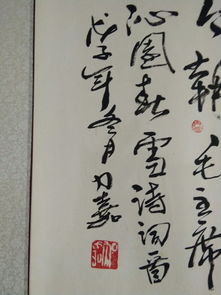 今朝 毛主席
沁園春雪诗词一首
戊子年冬月力嘉